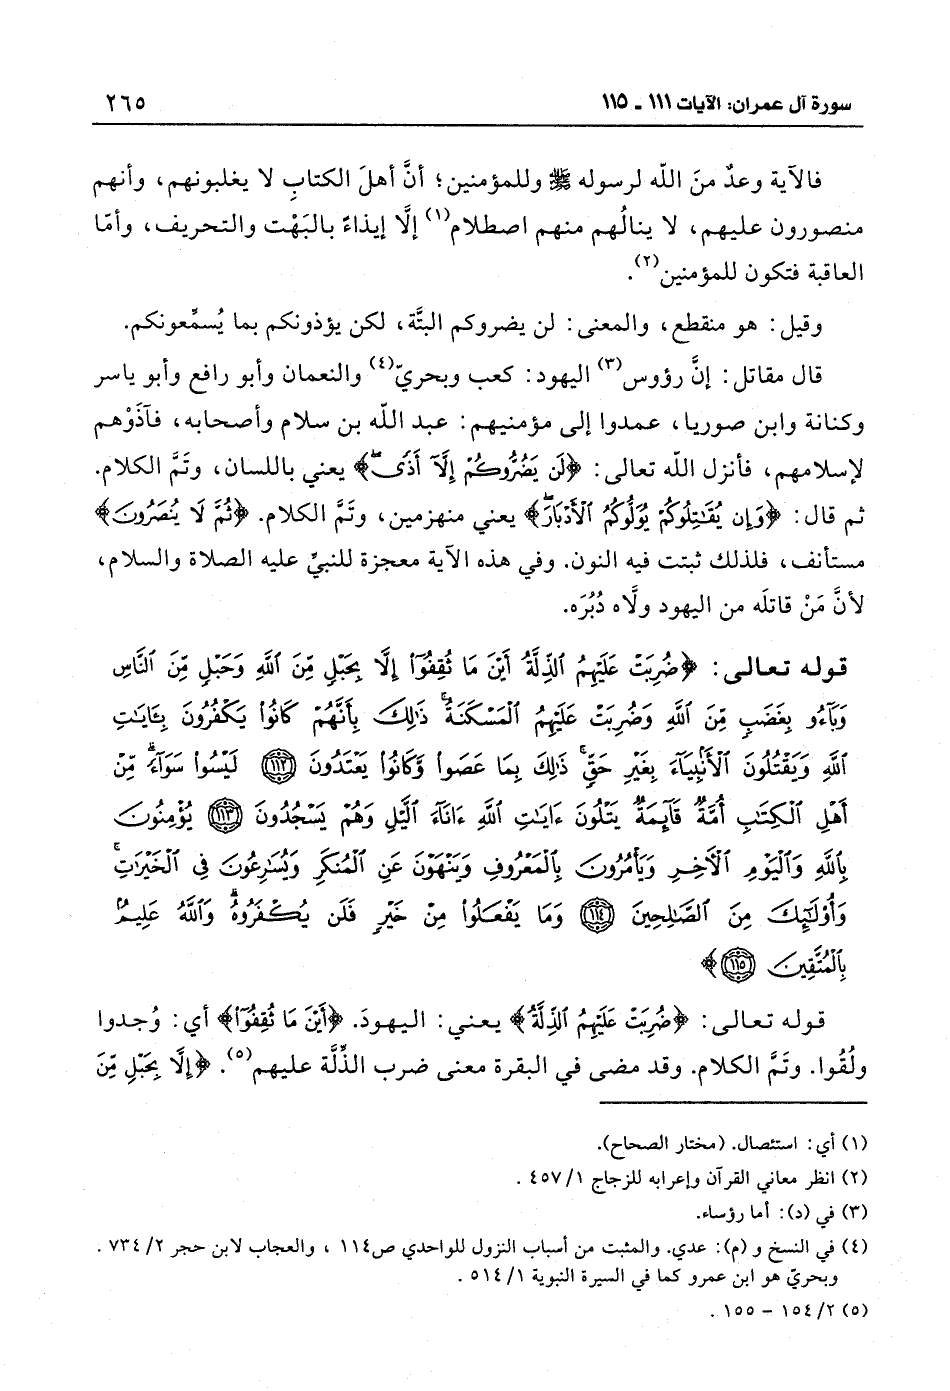 سورة آل عمران: الآيات ١١١ ـ ١١٥
٢٦٥
فالآية وعدٌ منَ الله لرسوله ﷺ وللمؤمنين؛ أنَّ أهلَ الكتابِ لا يغلبونهم، وأنهم
منصورون عليهم، لا ينالُهم منهم اصطلام(١) إلَّا إيذاءً بالبَهْت والتحريف، وأمّا
العاقبة فتكون للمؤمنين(٢).
وقيل: هو منقطع، والمعنى: لن يضروكم البتَّة، لكن يؤذونكم بما يُسمِّعونكم.
قال مقاتل: إنَّ رؤوس(٣) اليهود: كعب وبحريّ(٤) والنعمان وأبو رافع وأبو ياسر
وكنانة وابن صوريا، عمدوا إلى مؤمنيهم: عبد الله بن سلام وأصحابه، فآذَوْهم
لإسلامهم، فأنزل الله تعالى: ﴿لَن يَضُرُّوكُمْ إِلَّآ أَذًى﴾ يعني باللسان، وتَمَّ الكلام.
ثم قال: ﴿وَإِن يُقَٰتِلُوكُمْ يُوَلُّوكُمُ ٱلْأَدْبَارَ﴾ يعني منهزمين، وتَمَّ الكلام. ﴿ثُمَّ لَا يُنصَرُونَ﴾
مستأنف، فلذلك ثبتت فيه النون. وفي هذه الآية معجزة للنبيِّ عليه الصلاة والسلام،
لأنَّ مَنْ قاتلَه من اليهود ولَّاه دُبُرَه.
قوله تعالى: ﴿ضُرِبَتْ عَلَيْهِمُ ٱلذِّلَّةُ أَيْنَ مَا ثُقِفُوٓا۟ إِلَّا بِحَبْلٍ مِّنَ ٱللَّهِ وَحَبْلٍ مِّنَ ٱلنَّاسِ
وَبَآءُو بِغَضَبٍ مِّنَ ٱللَّهِ وَضُرِبَتْ عَلَيْهِمُ ٱلْمَسْكَنَةُ ۚ ذَٰلِكَ بِأَنَّهُمْ كَانُوا۟ يَكْفُرُونَ بِـَٔايَٰتِ
ٱللَّهِ وَيَقْتُلُونَ ٱلْأَنۢبِيَآءَ بِغَيْرِ حَقٍّ ۚ ذَٰلِكَ بِمَا عَصَوا۟ وَّكَانُوا۟ يَعْتَدُونَ ١١٢ لَيْسُوا۟ سَوَآءً ۗ مِّنْ
أَهْلِ ٱلْكِتَٰبِ أُمَّةٌ قَآئِمَةٌ يَتْلُونَ ءَايَٰتِ ٱللَّهِ ءَانَآءَ ٱلَّيْلِ وَهُمْ يَسْجُدُونَ ١١٣ يُؤْمِنُونَ
بِٱللَّهِ وَٱلْيَوْمِ ٱلْأَخِرِ وَيَأْمُرُونَ بِٱلْمَعْرُوفِ وَيَنْهَوْنَ عَنِ ٱلْمُنكَرِ وَيُسَٰرِعُونَ فِى ٱلْخَيْرَٰتِ ۚ
وَأُو۟لَٰٓئِكَ مِنَ ٱلصَّٰلِحِينَ ١١٤ وَمَا يَفْعَلُوا۟ مِنْ خَيْرٍ فَلَن يُكْفَرُوهُ ۗ وَٱللَّهُ عَلِيمٌۢ
بِٱلْمُتَّقِينَ ١١٥﴾
قوله تعالى: ﴿ضُرِبَتْ عَلَيْهِمُ ٱلذِّلَّةُ﴾ يعني: اليهودَ. ﴿أَيْنَ مَا ثُقِفُوٓا۟﴾ أي: وُجدوا
ولُقُوا. وتَمَّ الكلام. وقد مضى في البقرة معنى ضرب الذِّلَّة عليهم(٥). ﴿إِلَّا بِحَبْلٍ مِّنَ
(١) أي: استئصال. (مختار الصحاح).
(٢) انظر معاني القرآن وإعرابه للزجاج ١/ ٤٥٧ .
(٣) في (د): أما رؤساء.
(٤) في النسخ و (م): عدي. والمثبت من أسباب النزول للواحدي ص١١٤ ، والعجاب لابن حجر ٢/ ٧٣٤ .
وبحريّ هو ابن عمرو كما في السيرة النبوية ١/ ٥١٤ .
(٥) ٢/ ١٥٤ – ١٥٥ .